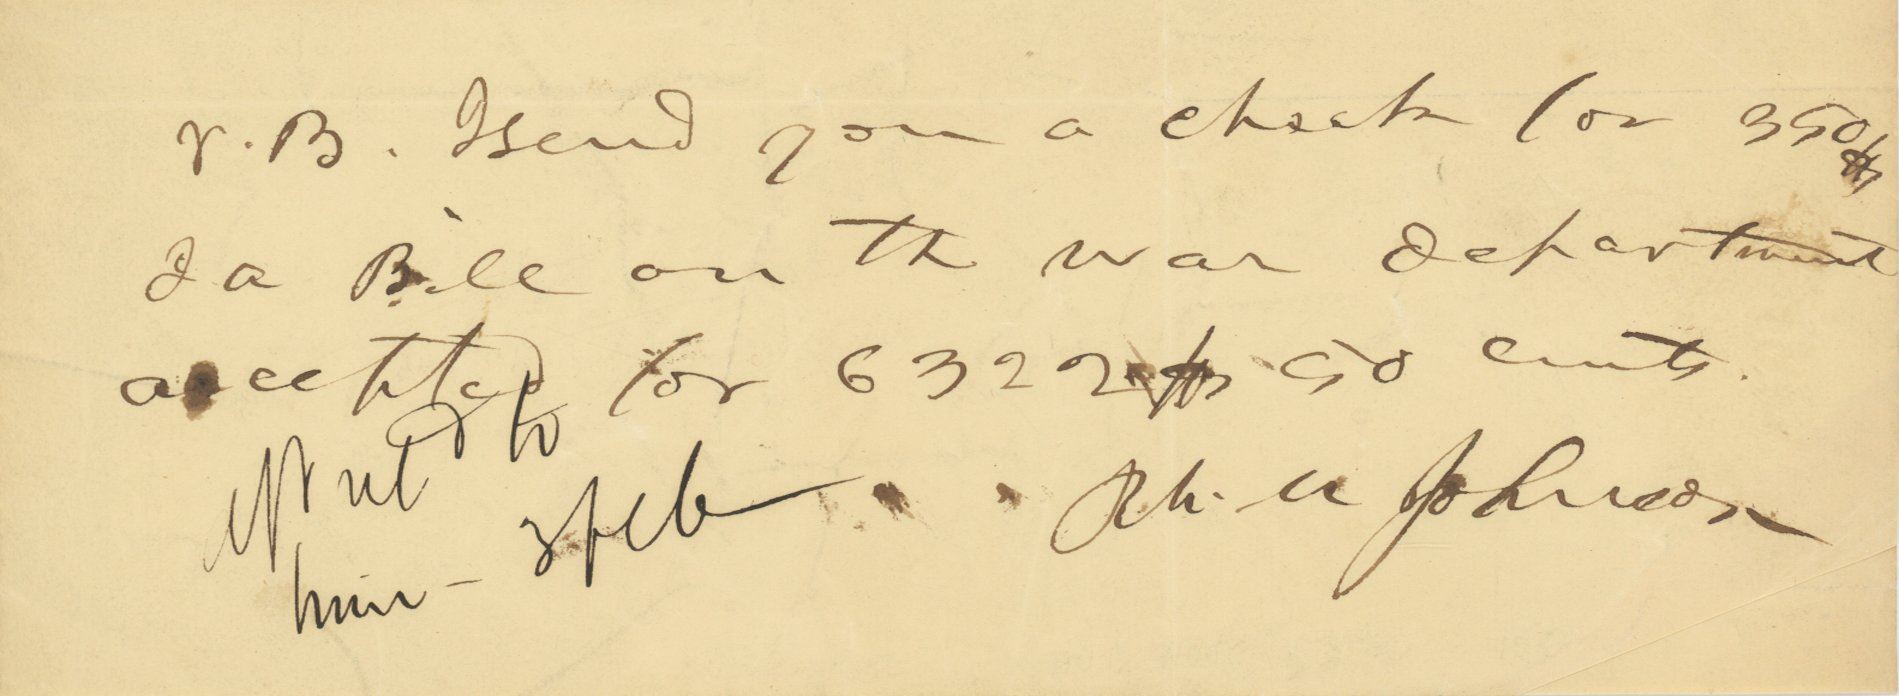 N.B. I send you a check for 350$
& a Bill on th war department
accepted for 6322$ 50 cents.
Rh. M Johnson
to
him - 3 Feb